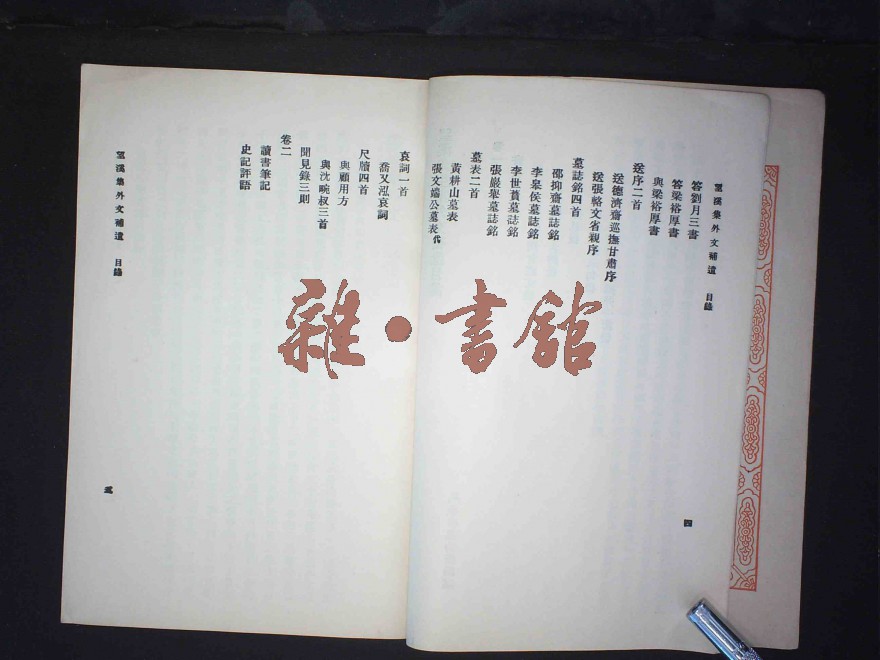 望溪集外文補遺 目錄
答劉月三書
答梁裕厚書
與梁裕厚書
送序二首
送德濟齋巡撫甘肅序
送張輅文省親序
墓誌銘四首
邵抑齋墓誌銘
李皋侯墓誌銘
李世蕡墓誌銘
張巖舉墓誌銘
墓表二首
黃耕山墓表
張文端公墓表代
四
哀詞一首
喬又泓哀詞
尺牘四首
與顧用方
與沈畹叔三首
聞見錄三則
卷二
讀書筆記
史記評語
望溪集外文補遺 目錄
五
雜·書館